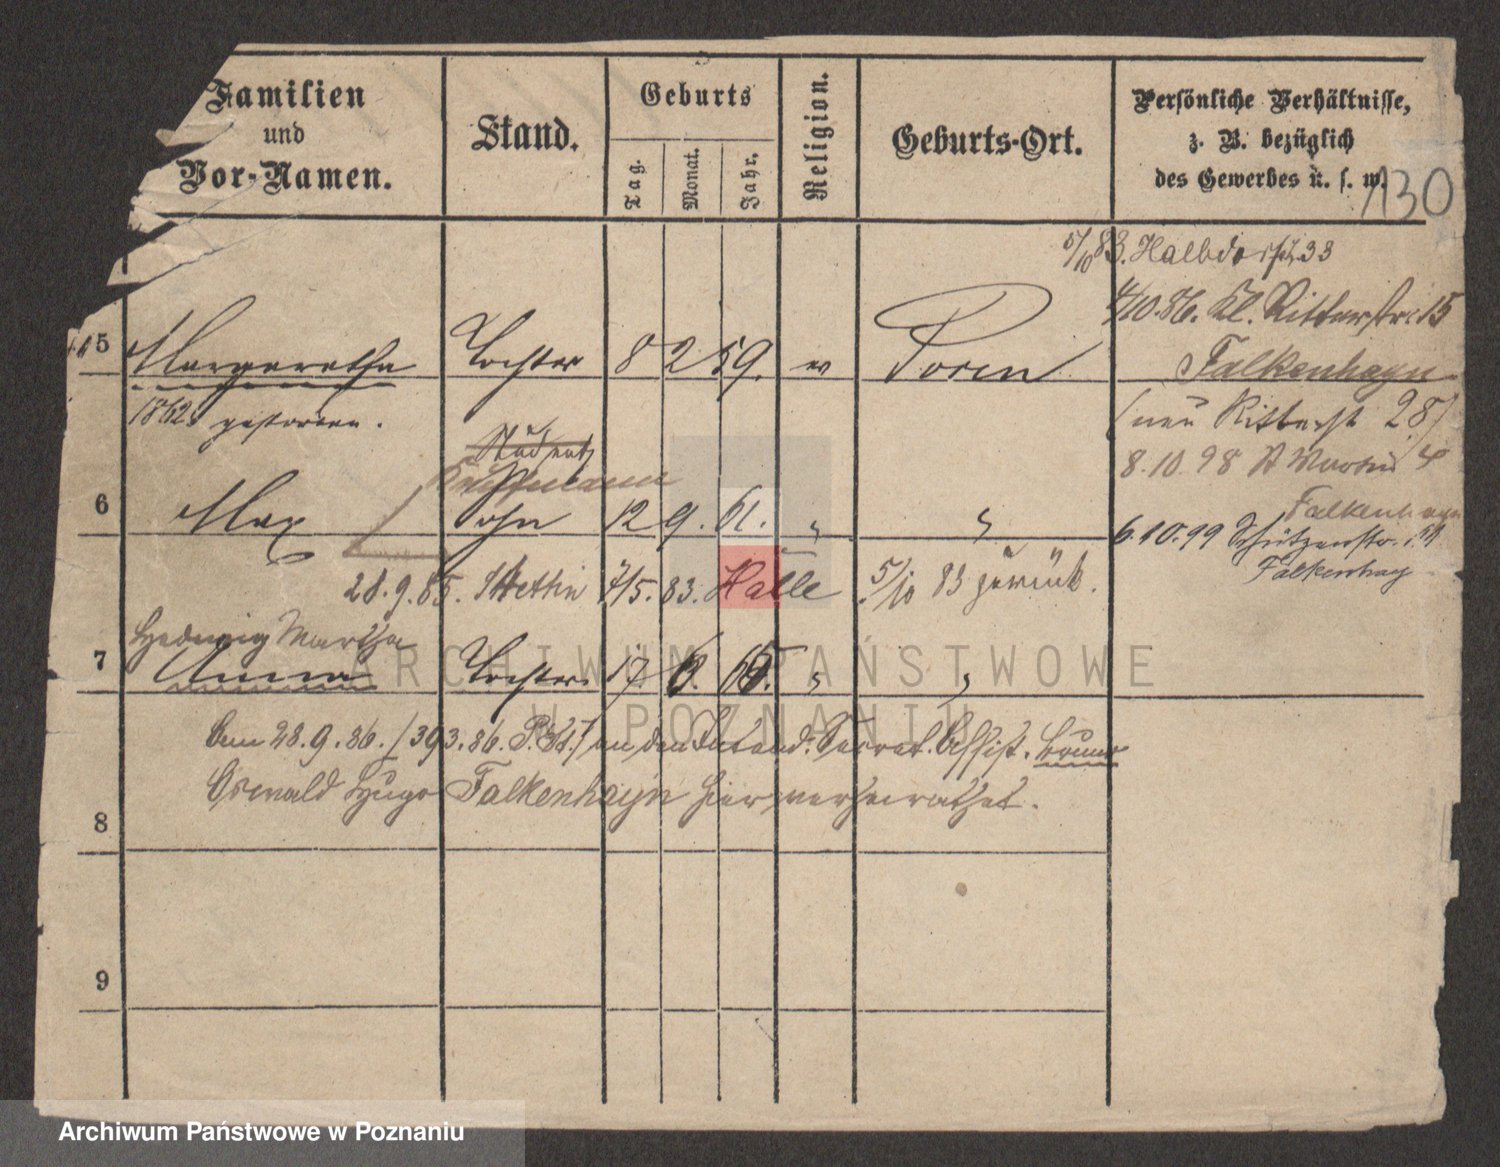 Familien
und
Vor-Namen.
Stand.
Geburts
Tag.
Monat.
Jahr.
Religion.
Geburts-Ort.
Persönliche Verhältnisse,
z. B. bezüglich
des Gewerbes u. s. w.
130
5/10 83. Halbdorfstr. 33
4/10.86. Kl. Ritterstr. 15
5 Margaretha Tochter 8 2 59. ev Posen
Falkenhayn
1862 gestorben.
(neu Ritterst 28)
Student
8.10.98 St Martin
Kaufmann
6 Max Sohn 12 9. 61. " "
Falkenhayn
6.10.99 Schützenstr.
Falkenhay
28.9.85. Stettin 7/5. 83. Halle 5/10 83 zurück.
Hedwig Martha
7 Anna Tochter 17. 6. 65. " "
Am 28.9.86. (393.86. P. St.) an den Intend. Secret. Assist. Bruno
Oswald Hugo Falkenhayn hier verheirathet.
8
9
ARCHIWUM PAŃSTWOWE
W POZNANIU
Archiwum Państwowe w Poznaniu